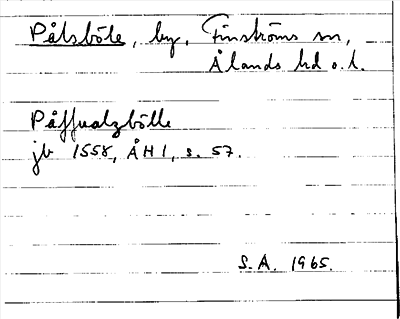 Pålsböle, by, Finströms sn,
Ålands hd o. l.
Påffualzbölle
jb 1558, ÅH 1, s. 57.
S.A. 1965.